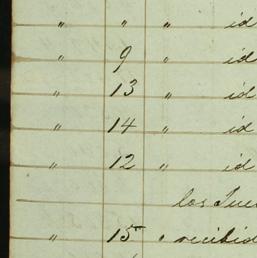 " " " id
" 9 " id
" 13 " id
" 14 " id
" 12 " id
los
" 15 " recibid